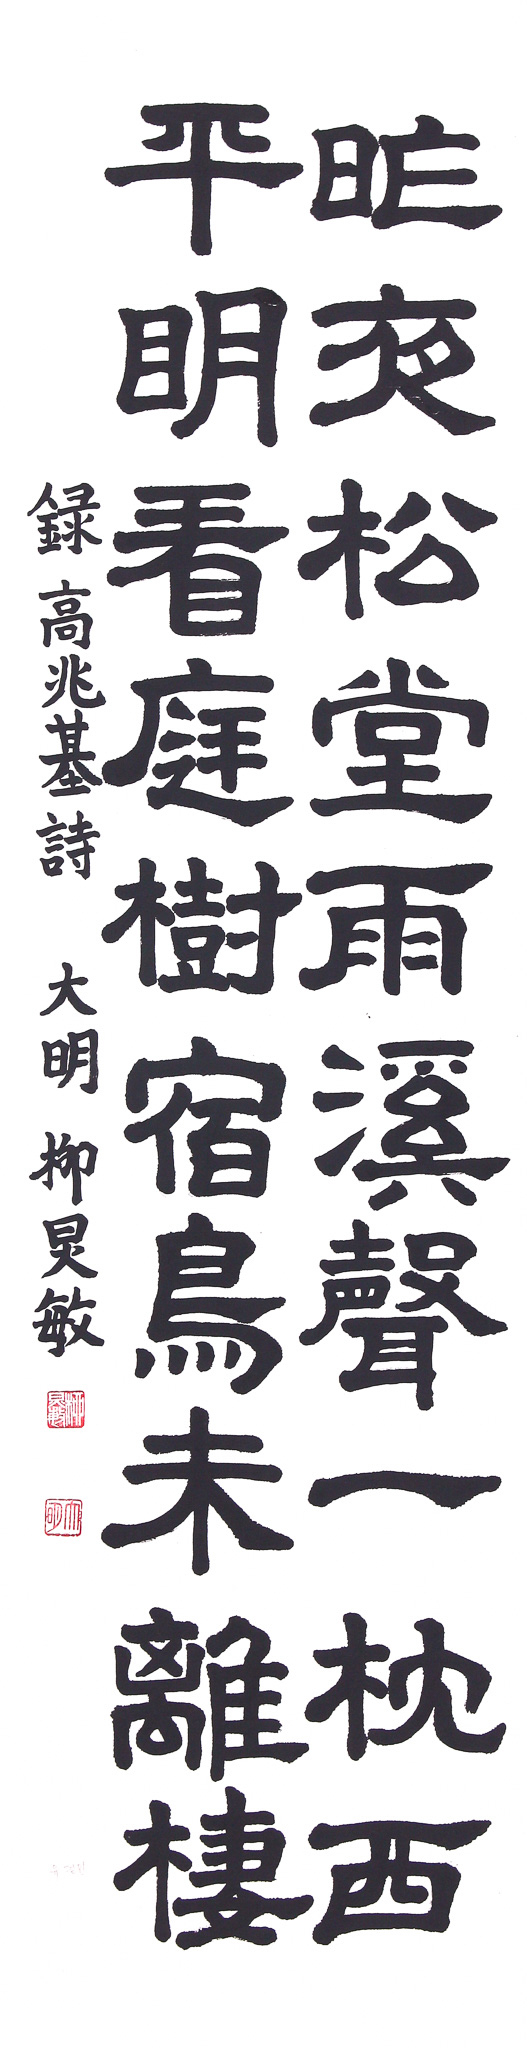 昨夜松堂雨溪聲一枕西
平明看庭樹宿鳥未離棲
録高兆基詩 大明 柳炅敏
柳炅敏
大明